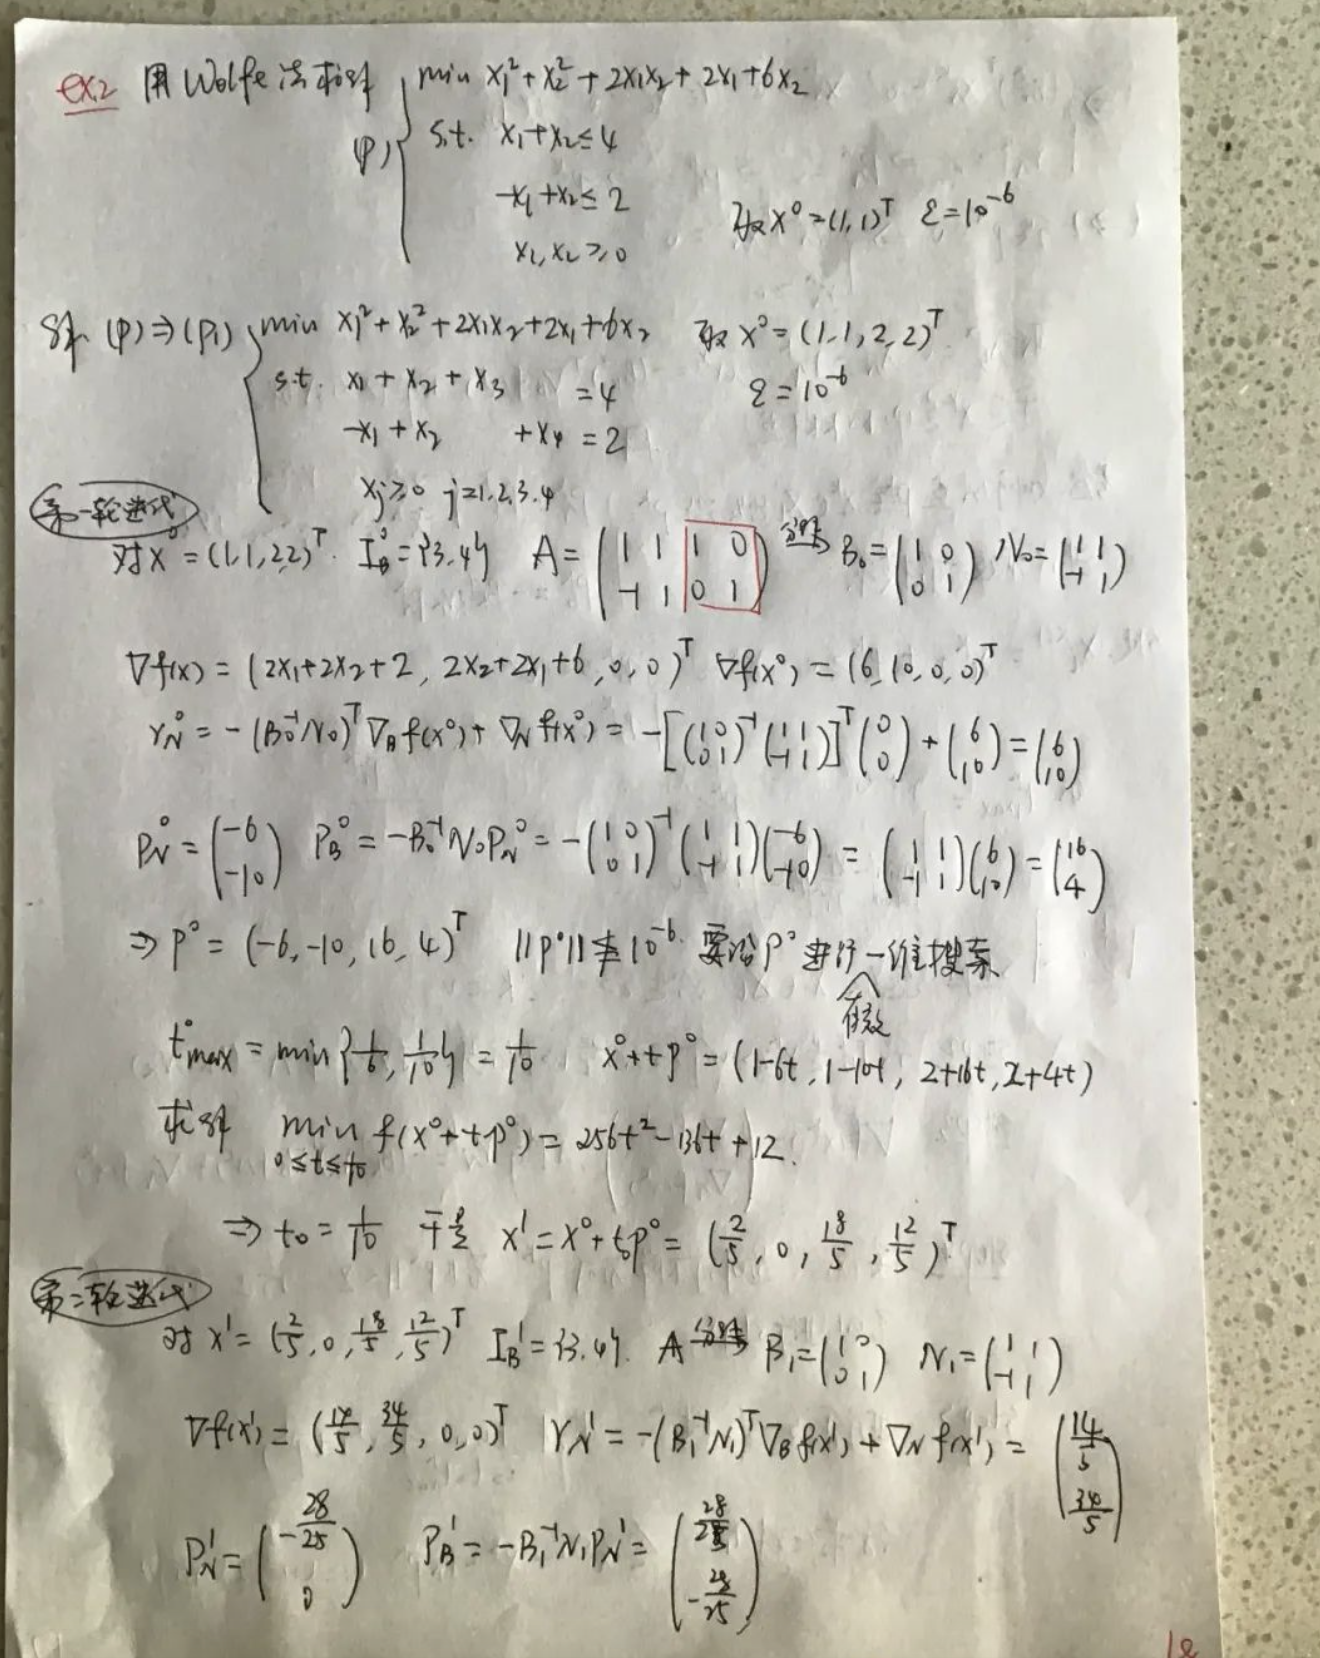 ex.2 用 Wolfe 法求解 (P) { min x₁² + x₂² + 2x₁x₂ + 2x₁ + 6x₂
s.t. x₁+x₂≤4
-x₁+x₂≤2
x₁,x₂≥0 取 x⁰=(1,1)ᵀ ε=10⁻⁶
解 (P)⇒(P₁) { min x₁² + x₂² + 2x₁x₂ + 2x₁ + 6x₂ 取 x⁰=(1,1,2,2)ᵀ
s.t. x₁ + x₂ + x₃ = 4 ε=10⁻⁶
-x₁ + x₂ + x₄ = 2
xⱼ≥0 j=1.2.3.4
第一轮迭代
对 x⁰=(1,1,2,2)ᵀ. I_B⁰={3,4} A = (1 1 1 0; -1 1 0 1) 分解 B₀=(1 0; 0 1), N₀=(1 1; -1 1)
∇f(x) = (2x₁+2x₂+2, 2x₂+2x₁+6, 0, 0)ᵀ ∇f(x⁰) = (6, 10, 0, 0)ᵀ
r_N⁰ = -(B₀⁻¹N₀)ᵀ∇_B f(x⁰) + ∇_N f(x⁰) = -[(1 0; 0 1)⁻¹(1 1; -1 1)]ᵀ(0; 0) + (6; 10) = (6; 10)
P_N⁰ = (-6; -10) P_B⁰ = -B₀⁻¹N₀P_N⁰ = -(1 0; 0 1)⁻¹(1 1; -1 1)(-6; -10) = (1 1; -1 1)(6; 10) = (16; 4)
⇒ P⁰ = (-6, -10, 16, 4)ᵀ ||P⁰|| ≰ 10⁻⁶. 要沿 P⁰ 进行一维搜索
有效
t⁰max = min{1/6, 1/10} = 1/10 x⁰+tP⁰ = (1-6t, 1-10t, 2+16t, 2+4t)
求解 min f(x⁰+tP⁰) = 256t² - 136t + 12.
0≤t≤1/10
⇒ t₀ = 1/10 于是 x¹ = x⁰+t₀P⁰ = (2/5, 0, 18/5, 12/5)ᵀ
第二轮迭代
对 x¹ = (2/5, 0, 18/5, 12/5)ᵀ I_B¹={3,4}. A 分解 B₁=(1 0; 0 1) N₁=(1 1; -1 1)
∇f(x¹) = (14/5, 34/5, 0, 0)ᵀ r_N¹ = -(B₁⁻¹N₁)ᵀ∇_B f(x¹) + ∇_N f(x¹) = (14/5; 34/5)
P_N¹ = (-28/25; 0) P_B¹ = -B₁⁻¹N₁P_N¹ = (28/25; -28/25)
18